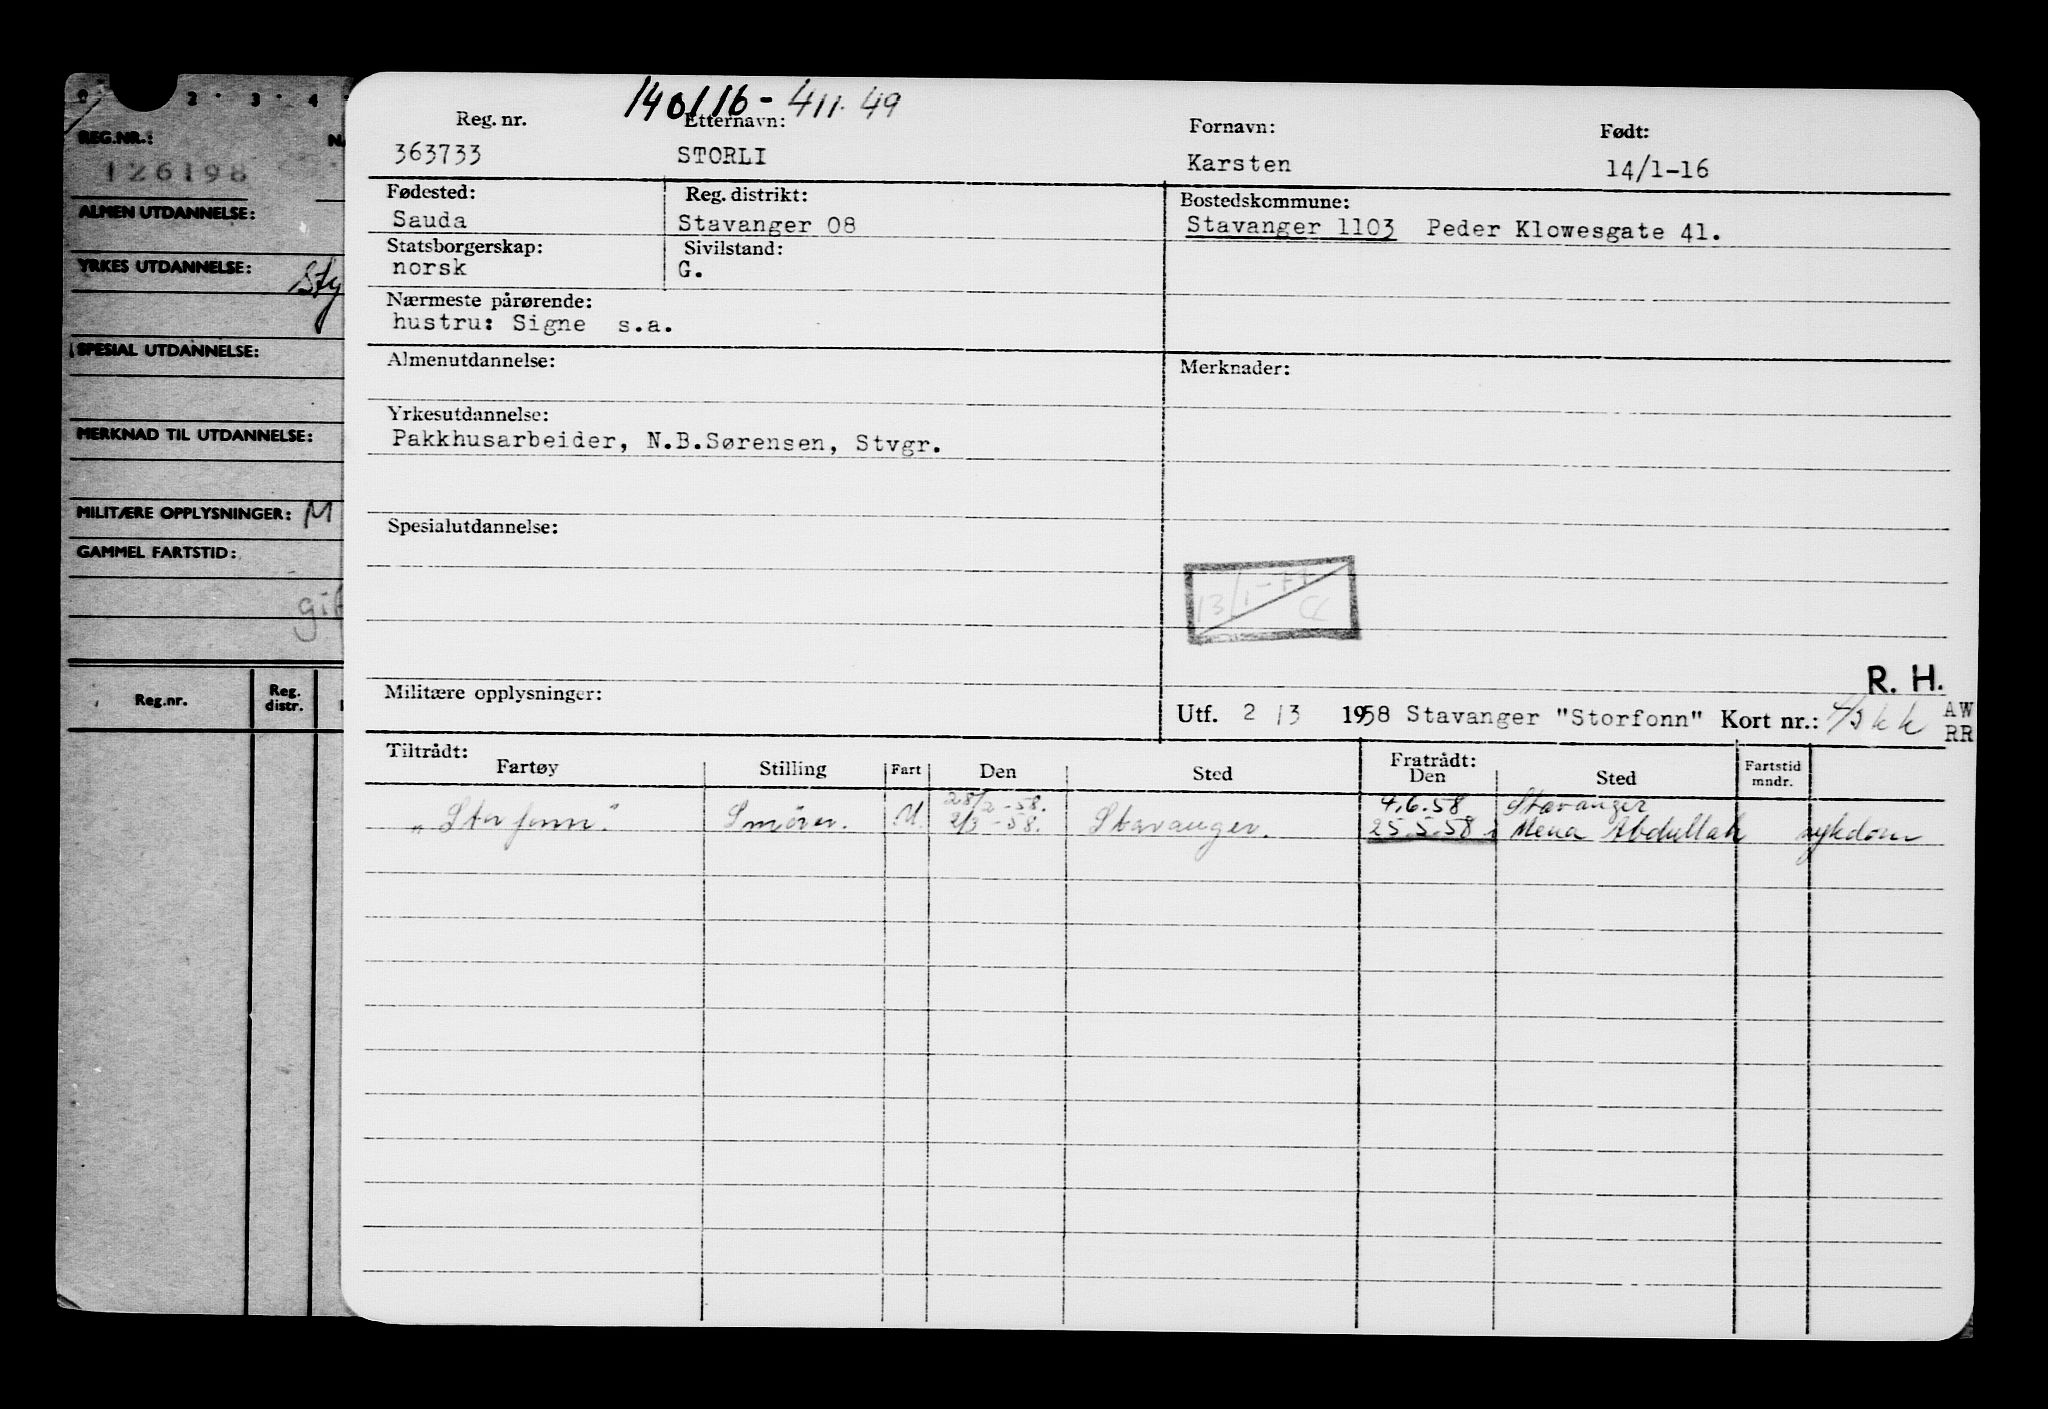 140116 - 411.49
Reg. nr. Etternavn: Fornavn: Født:
363733 STORLI Karsten 14/1-16
Fødested: Reg. distrikt: Bostedskommune:
Sauda Stavanger 08 Stavanger 1103 Peder Klowesgate 41.
Statsborgerskap: Sivilstand:
norsk G.
Nærmeste pårørende:
hustru: Signe s.a.
Almenutdannelse: Merknader:
Yrkesutdannelse:
Pakkhusarbeider, N.B.Sørensen, Stvgr.
Spesialutdannelse:
R. H.
Militære opplysninger:
Utf. 2 /3 1958 Stavanger "Storfonn" Kort nr.: AW
RR
Tiltrådt: Fratrådt:
Fartøy Stilling Fart Den Sted Den Sted Fartstid mndr.
28/2 -58. 4.6.58 Stavanger
"Storfonn." Smörer. U. 2/3 -58. Stavanger. 25.5.58 i Mena Abdullah sykdom
2 · 3 · 4
REG.NR.:
126198
ALMEN UTDANNELSE:
YRKES UTDANNELSE: Sty
SPESIAL UTDANNELSE:
MERKNAD TIL UTDANNELSE:
MILITÆRE OPPLYSNINGER: M
GAMMEL FARTSTID:
gif
Reg.nr. Reg. distr.